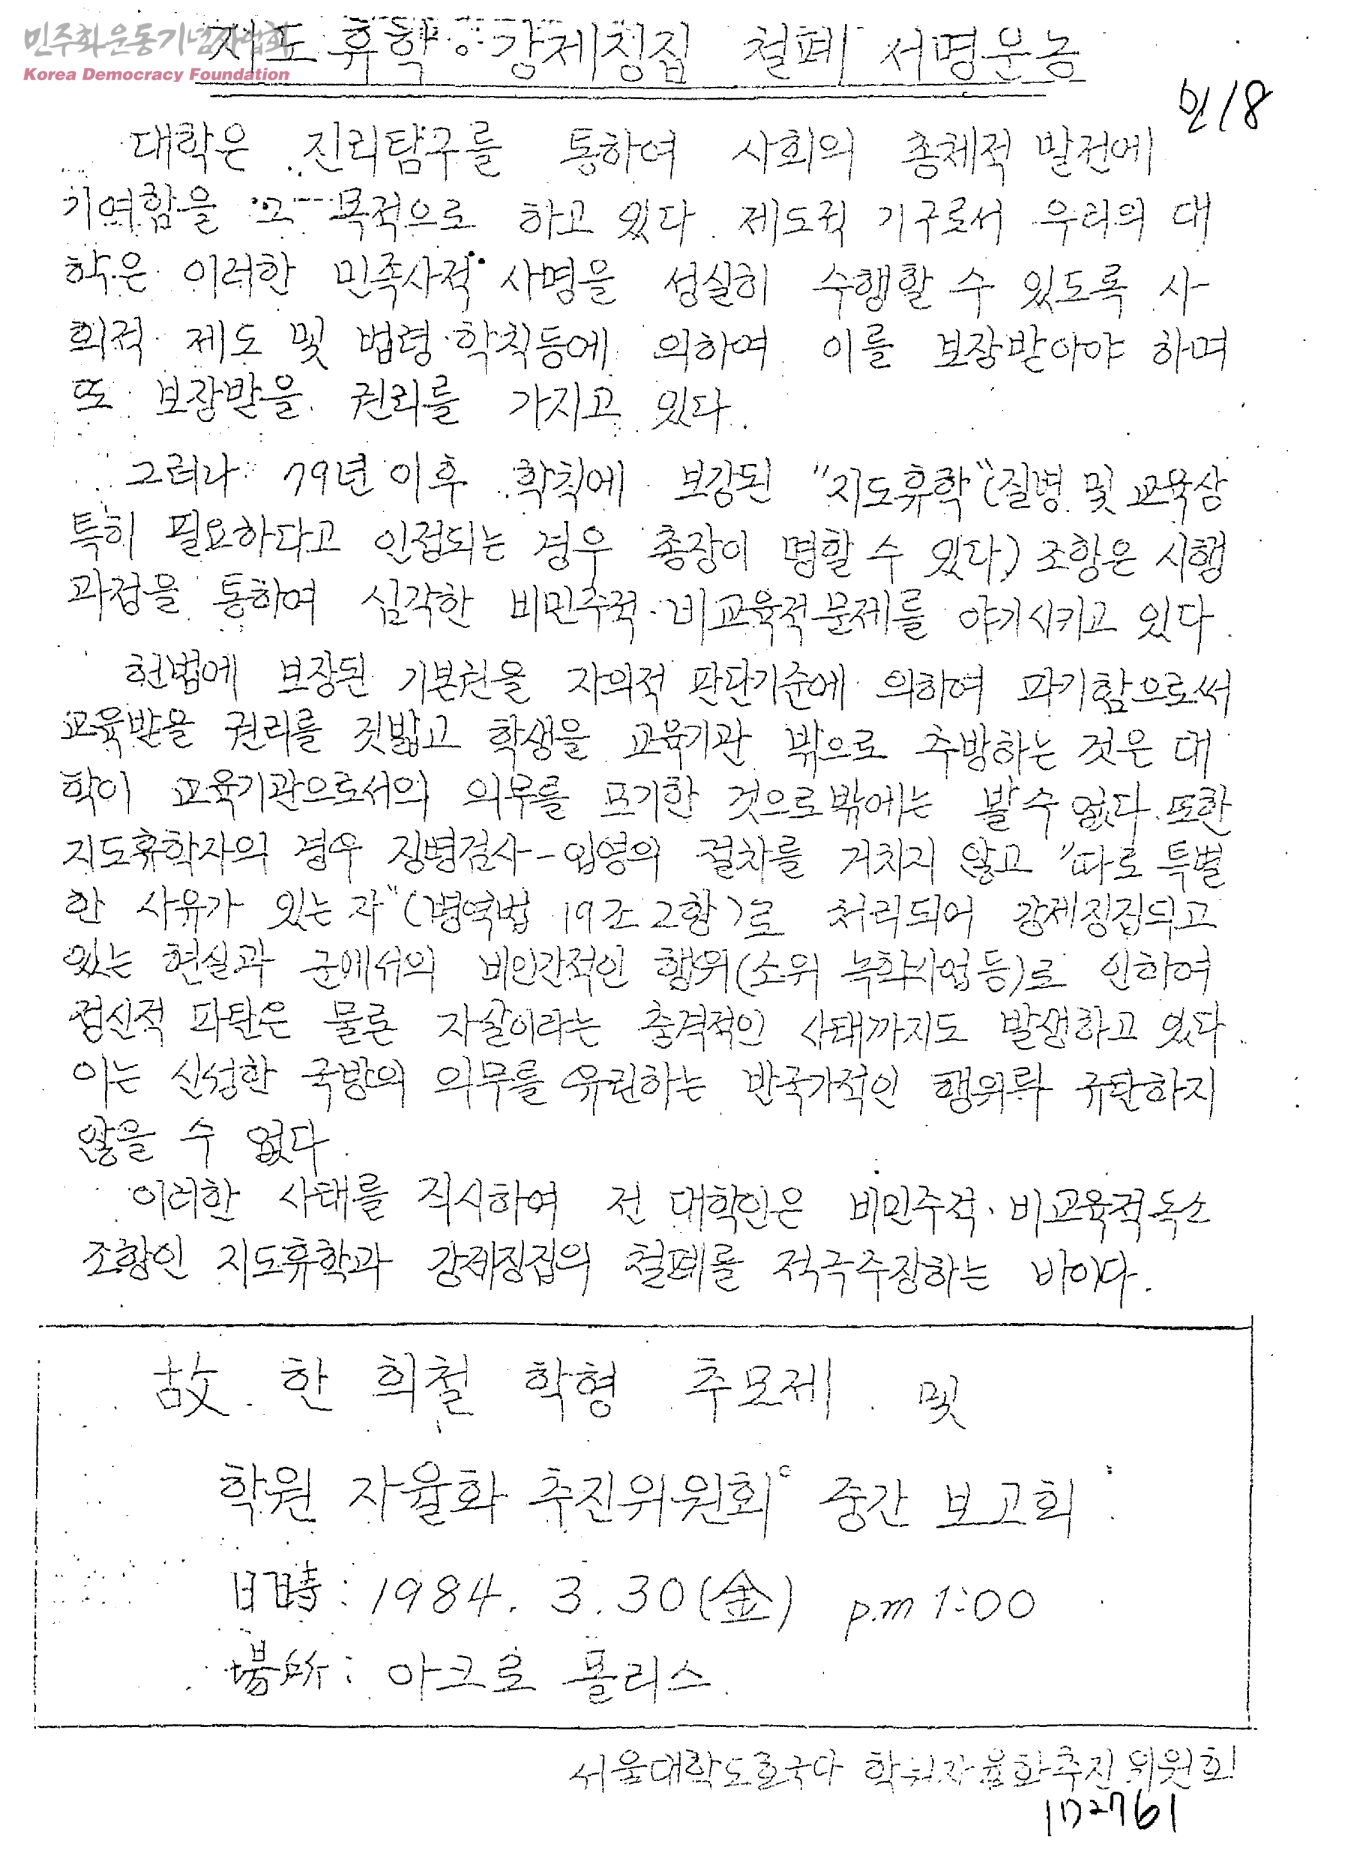 민주화운동기념사업회
Korea Democracy Foundation
지도휴학·강제징집 철폐 서명운동
민18
대학은 진리탐구를 통하여 사회의 총체적 발전에
기여함을 그 목적으로 하고 있다. 제도적 기구로서 우리의 대
학은 이러한 민족사적 사명을 성실히 수행할 수 있도록 사
회적 제도 및 법령·학칙등에 의하여 이를 보장받아야 하며
또 보장받을 권리를 가지고 있다.
그러나 79년 이후 학칙에 보강된 "지도휴학"(질병 및 교육상
특히 필요하다고 인정되는 경우 총장이 명할 수 있다) 조항은 시행
과정을 통하여 심각한 비민주적·비교육적 문제를 야기시키고 있다.
헌법에 보장된 기본권을 자의적 판단기준에 의하여 파기함으로써
교육받을 권리를 짓밟고 학생을 교육기관 밖으로 추방하는 것은 대
학이 교육기관으로서의 의무를 포기한 것으로밖에는 볼수 없다. 또한
지도휴학자의 경우 징병검사-입영의 절차를 거치지 않고 "따로 특별
한 사유가 있는 자"(병역법 19조 2항)로 처리되어 강제징집되고
있는 현실과 군에서의 비인간적인 행위(소위 녹화사업등)로 인하여
정신적 파탄은 물론 자살이라는 충격적인 사태까지도 발생하고 있다.
이는 신성한 국방의 의무를 유린하는 반국가적인 행위라 규탄하지
않을 수 없다.
이러한 사태를 직시하여 전 대학인은 비민주적·비교육적 독소
조항인 지도휴학과 강제징집의 철폐를 적극주장하는 바이다.
故 한 희철 학형 추모제 및
학원 자율화 추진위원회 중간 보고회
日時: 1984. 3. 30(金) p.m 1:00
場所: 아크로 폴리스
서울대학도호국단 학원자율화추진위원회
172761